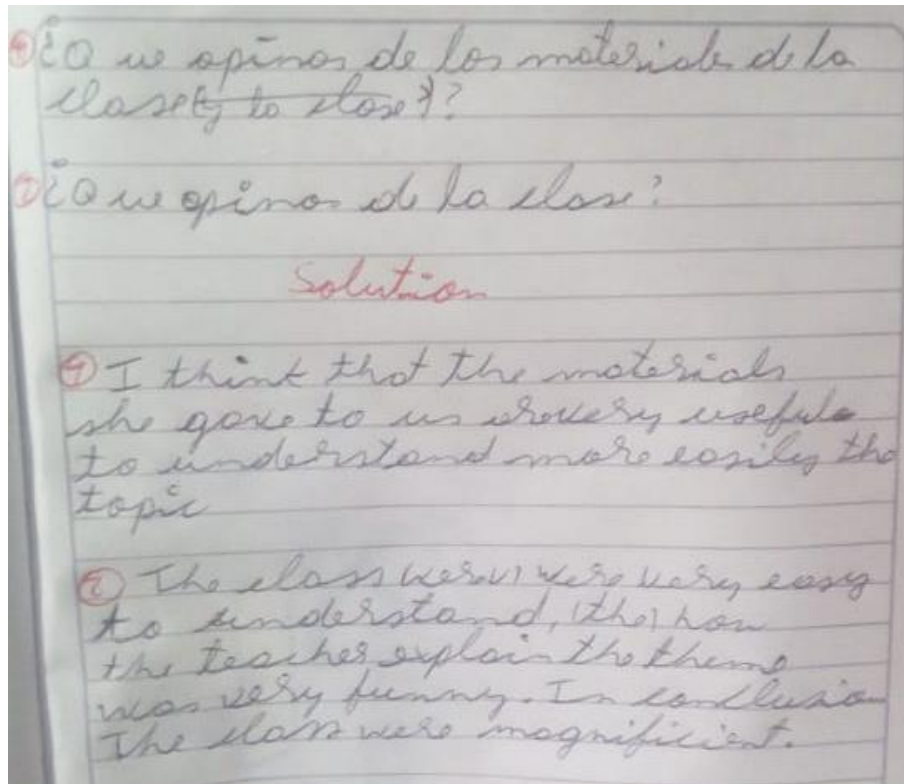 ① ¿Que opinas de los materiales de la
clase?
② ¿Que opinas de la clase?
Solution
① I think that the materials
she gave to us are very useful
to understand more easily the
topic
② The class were very easy
to understand, (the) how
the teacher explain the theme
was very funny. In conclusion
The class were magnificient.